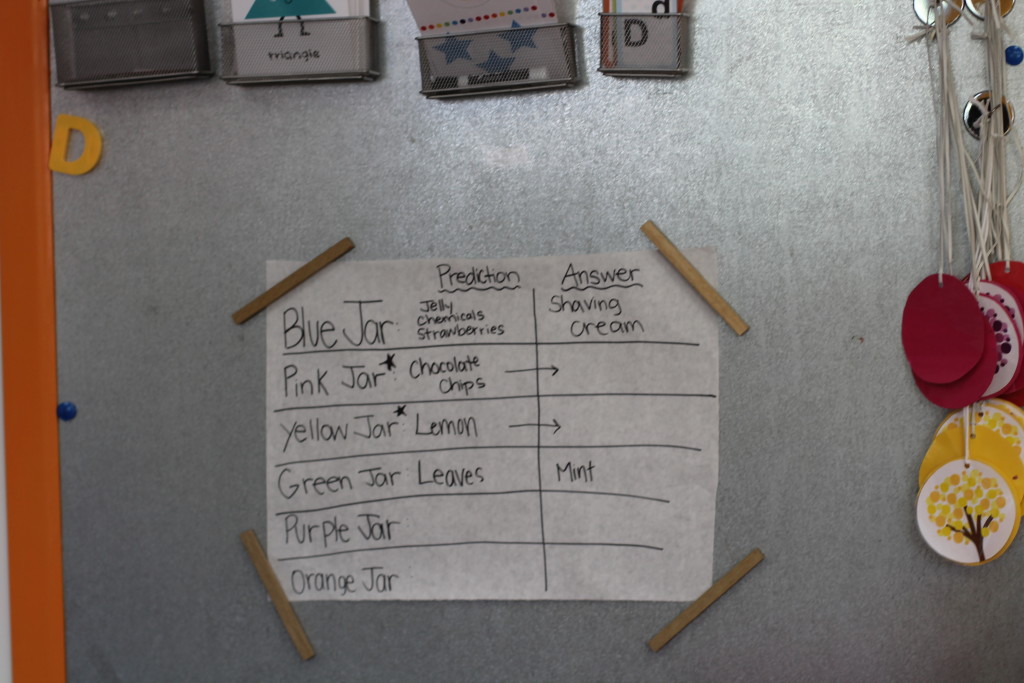 triangle
d
D
D
Prediction Answer
Blue Jar: Jelly
Chemicals
Strawberries
Shaving
Cream
Pink Jar*: Chocolate
Chips →
Yellow Jar*: Lemon →
Green Jar Leaves Mint
Purple Jar
Orange Jar